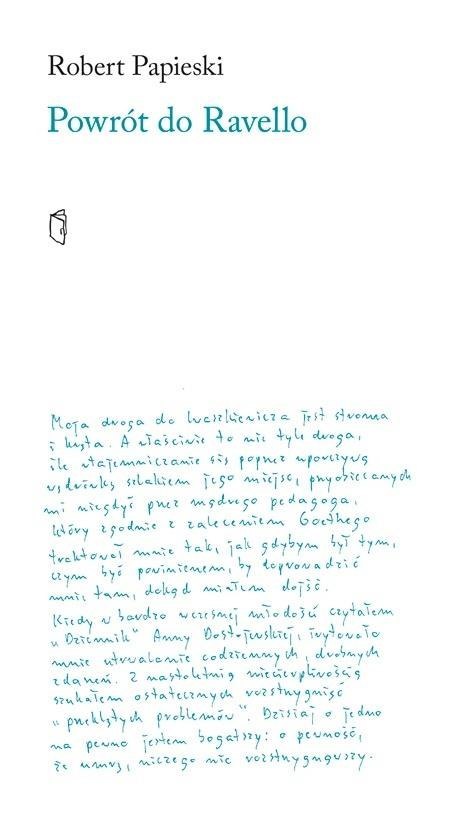 Robert Papieski
Powrót do Ravello
Moja droga do Iwaszkiewicza jest stroma
i kręta. A właściwie to nie tyle droga,
ile wtajemniczanie się poprzez uporczywą
wędrówkę szlakiem jego miejsc, przyobiecanych
mi niegdyś przez mądrego pedagoga,
który zgodnie z zaleceniem Goethego
traktował mnie tak, jak gdybym był tym,
czym być powinienem, by doprowadzić
mnie tam, dokąd miałem dojść.
Kiedy w bardzo wczesnej młodości czytałem
„Dziennik" Anny Dostojewskiej, irytowało
mnie utrwalanie codziennych, drobnych
zdarzeń. Z nastoletnią niecierpliwością
szukałem ostatecznych rozstrzygnięć
„przeklętych problemów". Dzisiaj o jedno
na pewno jestem bogatszy: o pewność,
że umrę, niczego nie rozstrzygnąwszy.